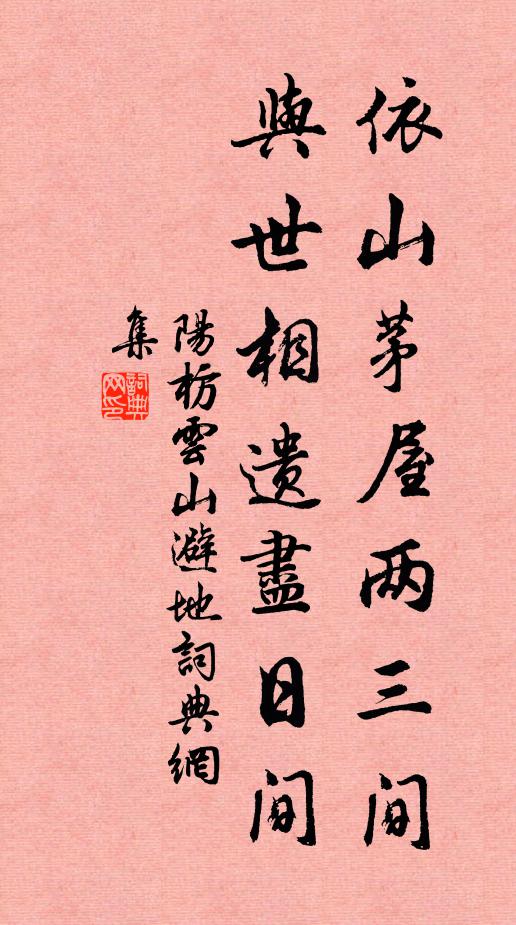 依山茅屋两三间
與世相遺盡日间
陽枋雲山避地詞典網
集
詞典
网印